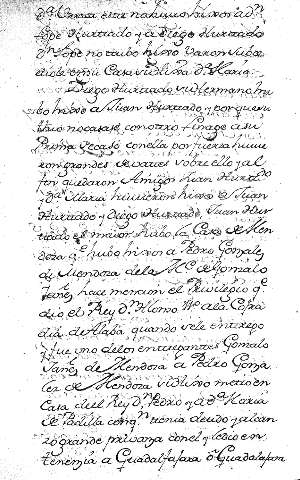 Lope Hurtado y a Diego Hurtado
dᵒⁿ Lope no tubo hixo varon suce
diole en su Casa su sobrina Dᵃ Maria
Diego Hurtado su hermano hu
bo hixo a Juan Hurtado y porque su
tio no casase con otro linage a su
Prima caso con ella por fuerza huuie
ron grandes sobre ello y al
fin quedaron Amigos Juan Hurtado
y Dᵃ Maria huuieron hixos a Juan
Hurtado y Diego Hurtado, Juan Hur
tado el maior hubo la Casa de Men
doza q̄ hubo hixos a Pedro Gonzalez
de Mendoza de la Gonzalo
Yañez hace mencion el Privilegio q̄
dio el Rey Dⁿ Alonso a la Cofra
dia de Alaba quando se le entrego
que uno de los entregantes Gonzalo
Yañez de Mendoza a Pedro Gonza
lez de Mendoza su hixo metio en
Casa del Rey Dⁿ Pedro y a Dᵃ Maria
de Padilla con qⁿ tenia deudo y alcan
zo grande privanza con el y le dio en
tenencia a Guadalfaxara o Guadalajara